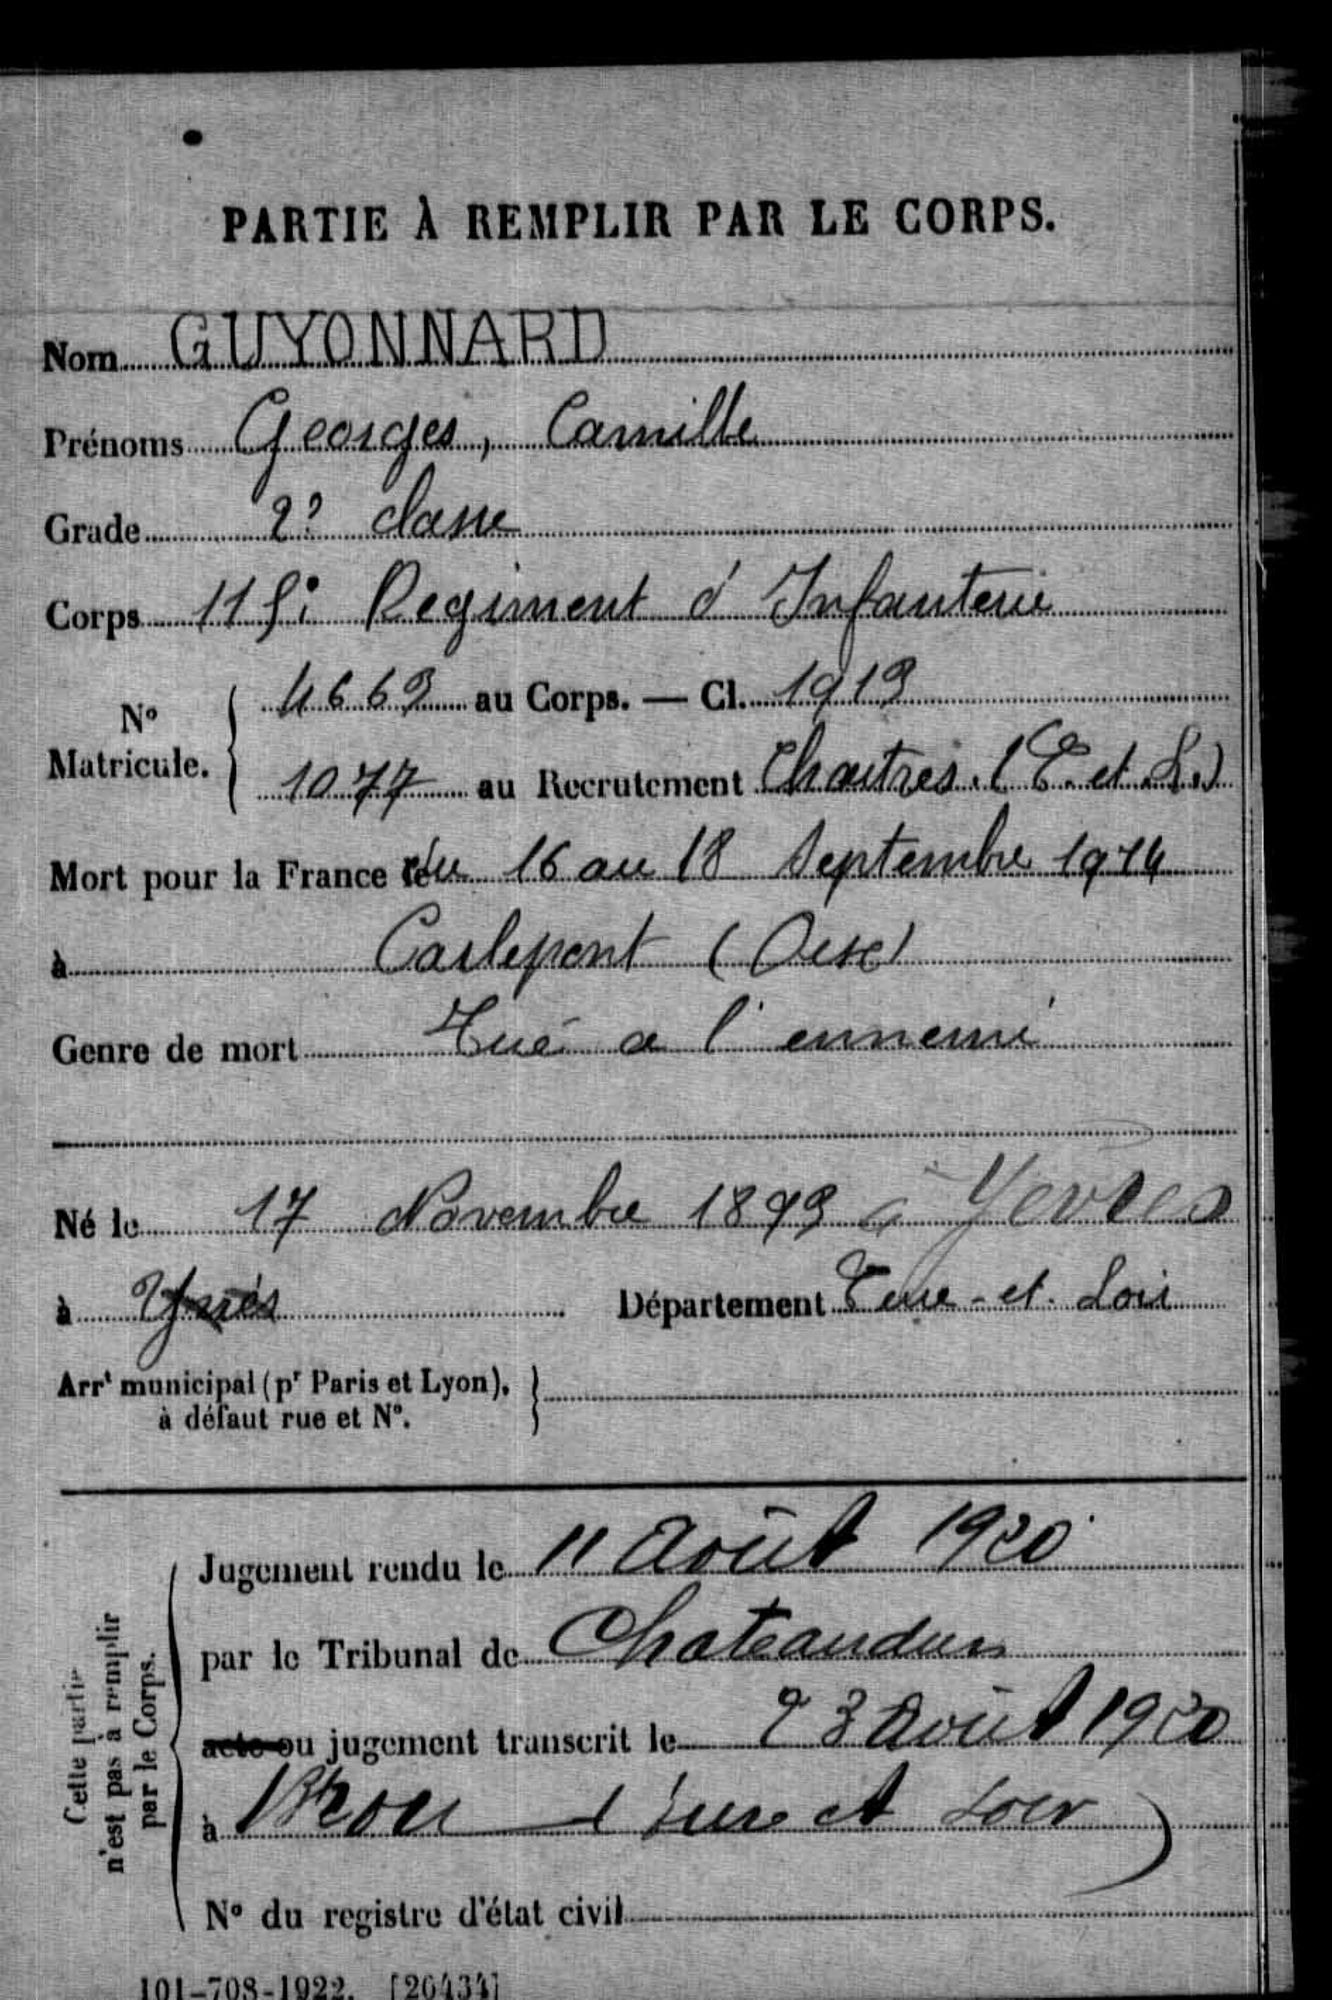 PARTIE À REMPLIR PAR LE CORPS.
Nom GUYONNARD
Prénoms Georges, Camille
Grade 2e classe
Corps 115e Regiment d'Infanterie
No Matricule. 4669 au Corps. — Cl. 1913
1077 au Recrutement Chartres (E. et L.)
Mort pour la France du 16 au 18 Septembre 1914
à Carlepont (Oise)
Genre de mort Tué a l'ennemi
Né le 17 Novembre 1893 à Yevres
à Département Eure-et-Loir
Arrt municipal (pr Paris et Lyon),
à défaut rue et No.
Cette partie
n'est pas à remplir
par le Corps.
Jugement rendu le 11 Août 1920
par le Tribunal de Chateaudun
acte ou jugement transcrit le 23 Août 1920
à Brou (Eure et Loir)
No du registre d'état civil
101-708-1922. [26434]